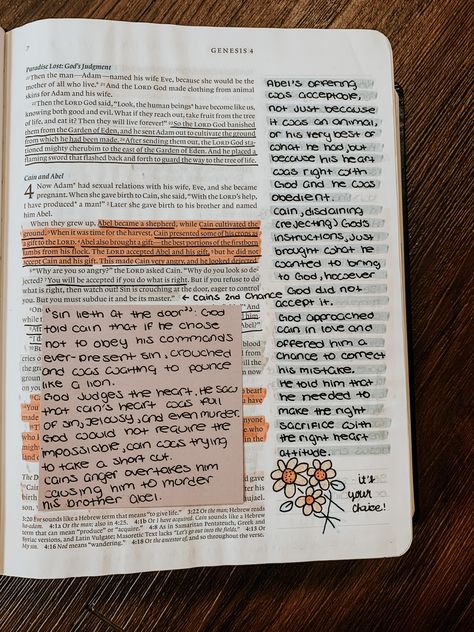 7
GENESIS 4
Paradise Lost: God's Judgment
20 Then the man—Adam—named his wife Eve, because she would be the
mother of all who live.* 21 And the LORD God made clothing from animal
skins for Adam and his wife.
22 Then the LORD God said, "Look, the human beings* have become like us,
knowing both good and evil. What if they reach out, take fruit from the tree
of life, and eat it? Then they will live forever!" 23 So the LORD God banished
them from the Garden of Eden, and he sent Adam out to cultivate the ground
from which he had been made. 24 After sending them out, the LORD God
stationed mighty cherubim to the east of the Garden of Eden. And he placed a
flaming sword that flashed back and forth to guard the way to the tree of life.
Cain and Abel
4 Now Adam* had sexual relations with his wife, Eve, and she became
pregnant. When she gave birth to Cain, she said, "With the LORD's help, I
have produced* a man!" 2 Later she gave birth to his brother and named
him Abel.
When they grew up, Abel became a shepherd, while Cain cultivated the
ground. 3 When it was time for the harvest, Cain presented some of his crops as
a gift to the LORD. 4 Abel also brought a gift—the best portions of the firstborn
lambs from his flock. The LORD accepted Abel and his gift, 5 but he did not
accept Cain and his gift. This made Cain very angry, and he looked dejected.
6 "Why are you so angry?" the LORD asked Cain. "Why do you look so de-
jected? 7 You will be accepted if you do what is right. But if you refuse to do
what is right, then watch out! Sin is crouching at the door, eager to control
you. But you must subdue it and be its master."
← Cains 2nd Chance
"Sin lieth at the door". God
told cain that if he chose
not to obey his commands
ever-present sin, crouched
and was waiting to pounce
like a lion.
God judges the heart, He saw
that cain's heart was full
of sin, jelousy, and even murder.
God would not require the
impossiable, cain was trying
to take a short cut.
cains anger overtakes him
causing him to murder
his brother Abel.
Abel's offering
was acceptable,
not just because
it was an animal,
or his very best of
what he had, but
because his heart
was right with
God and he was
obedient.
cain, disdaining
(rejecting) God's
instructions, just
brought what he
wanted to bring
to God, however
God did not
accept it.
God approached
cain in love and
offered him a
chance to correct
his mistake.
He told him that
he needed to
make the right
sacrifice with
the right heart
attitude.
it's
your
choice!
3:20 Eve sounds like a Hebrew term that means "to give life." 3:22 Or the man; Hebrew reads
4:1a Or the man; also in 4:25. 4:1b Or I have acquired. Cain sounds like a Hebrew
term that can mean "produce" or "acquire." 4:8 As in Samaritan Pentateuch, Greek and
Syriac versions, and Latin Vulgate; Masoretic Text lacks "Let's go out into the fields."
4:16 Nod means "wandering." 4:18 Or the ancestor of, and so throughout the verse.